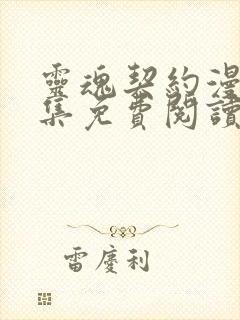 靈魂契約漫
集免費閱讀
雷慶利